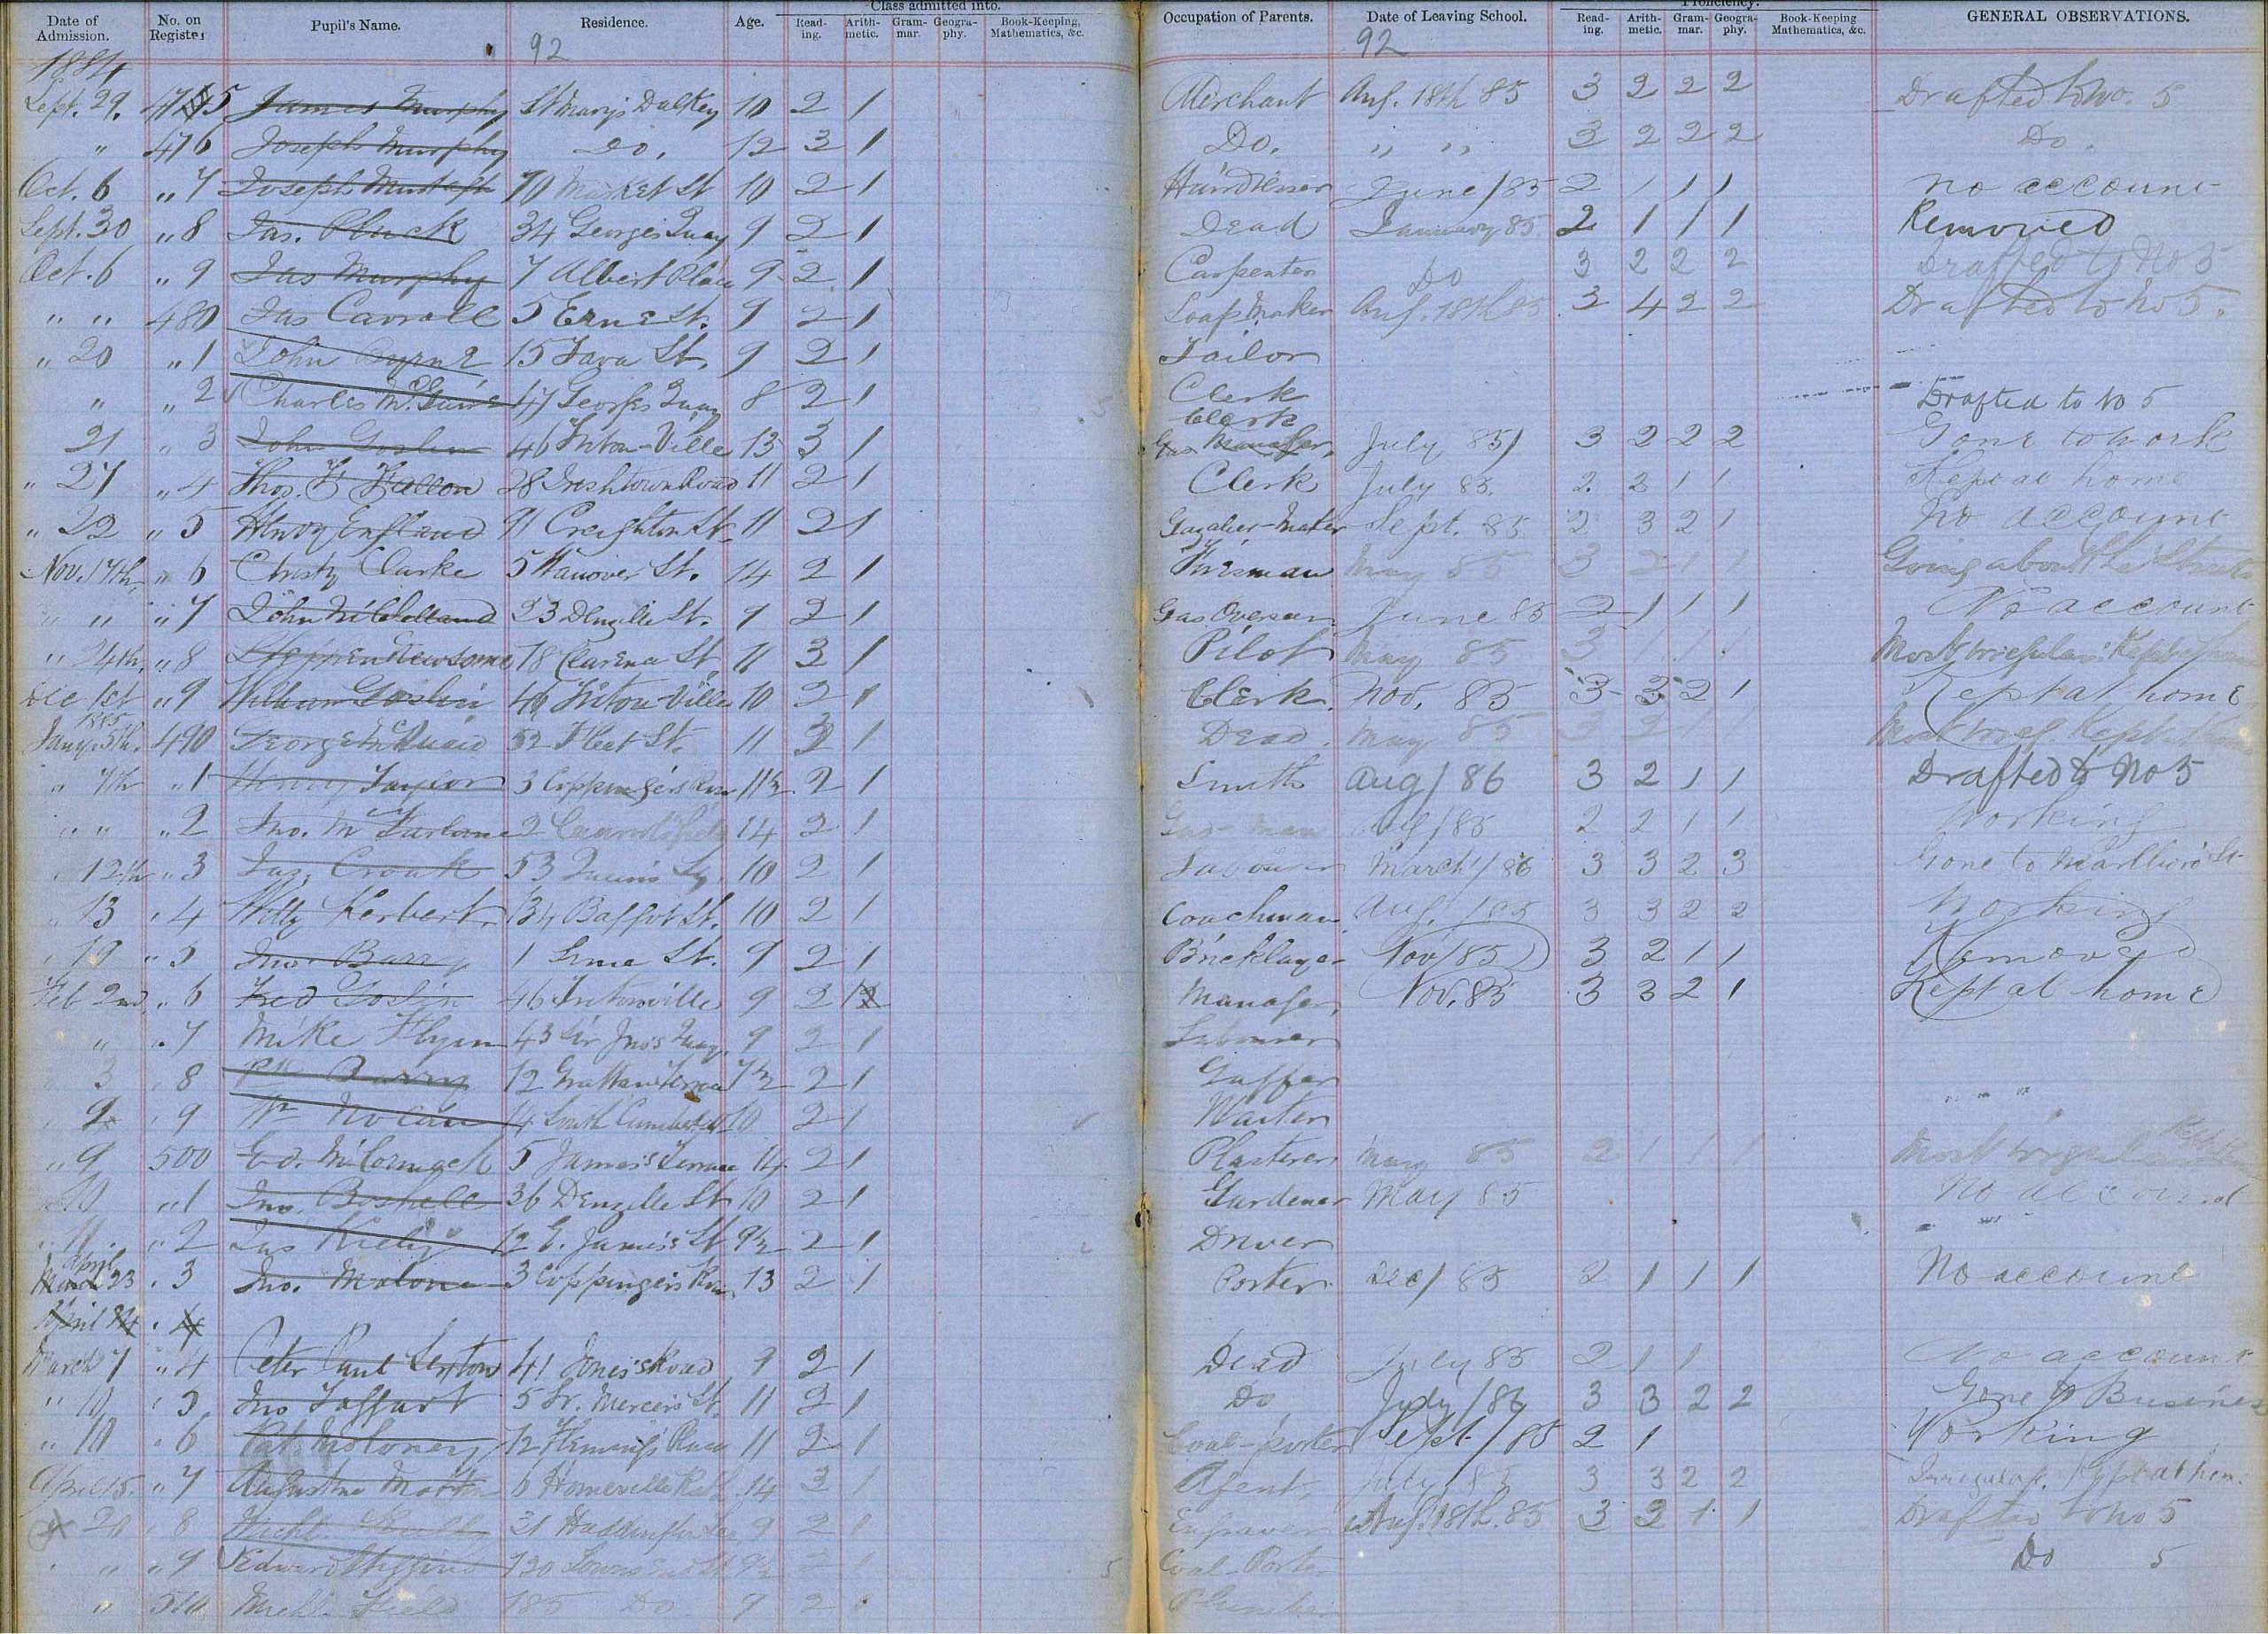 Date of Admission. No. on Register Pupil's Name. Residence. Age. Class admitted into. Reading. Arithmetic. Grammar. Geography. Book-Keeping, Mathematics, &c. Occupation of Parents. Date of Leaving School. Proficiency. Reading. Arithmetic. Grammar. Geography. Book-Keeping Mathematics, &c. GENERAL OBSERVATIONS.
92 92
1884
Sept. 29. 475 James Murphy St Mary's Dalkey 10 2 1 Merchant Aug. 18th 85 3 2 2 2 Drafted to No. 5
" 476 Joseph Murphy Do. 12 3 1 Do. " " 3 2 2 2 Do.
Oct. 6 " 7 Joseph 10 Market St 10 2 1 June / 85 2 1 1 1 no account
Sept. 30 " 8 Jas. Pluck 34 George's Quay 9 2 1 Dead January 85 2 1 1 1 Removed
Oct. 6 " 9 Jas Murphy 7 Albert Place 9 2 1 Carpenter Do 3 2 2 2 Drafted to No 5
" " 480 Jas Carroll 5 Erne St. 9 2 1 Soap Maker Aug. 18th 85 3 4 2 2 Drafted to No 5.
" 20 " 1 John Byrne 15 Tara St. 9 2 1 Tailor
" " 2 Charles McGuire 47 Georges Quay 8 2 1 Clerk Drafted to No 5
Clerk
21 " 3 John Goslin 46 Triton-Ville 13 3 1 Gas Manager, July 85 3 2 2 2 Gone to work
" 27 " 4 Thos. F Fallon 28 Irishtown Road 11 2 1 Clerk July 85. 2 2 1 1 Kept at home
" 22 " 5 Henry England 91 Creighton St. 11 2 1 Gazalier-Maker Sept. 85 2 3 2 1 No account
Nov. 17th " 6 Christy Clarke 5 Hanover St. 14 2 1 Fireman May 85 3 2 1 1 Going about the Streets
" " " 7 John McClelland 23 Denzille St. 9 2 1 Gas Overseer June 85 2 1 1 1 No account
" 24th. " 8 Stephen Newsome 18 Clarence St 11 3 1 Pilot May 85 3 1 1 1 Most irregular. Kept at home
Dec 1st " 9 William Goslin 46 Triton-Ville 10 2 1 Clerk. Nov. 85 3 3 2 1 Kept at home
1885
Jany. 5th. 490 George McQuaid 52 Fleet St. 11 3 1 Dead. May 85 3 2 1 1 Most irreg. Kept at home
" 7th " 1 Henry Taylor 3 Coppinger's Row 11½ 2 1 Smith Aug / 86 3 2 1 1 Drafted to No 5
" " " 2 Jno. McFarlane 2 14 2 1 Gas-man Aug / 85 2 2 1 1 Working
" 12th " 3 Jas. Croak 53 Queen's Sq. 10 2 1 Labourer March / 86 3 3 2 3 Gone to Marlboro' St.
" 13 " 4 Willy Herbert 134 Baggot St. 10 2 1 Coachman Aug. / 85 3 3 2 2 Working
" 19 " 5 Jno. Barry 1 Erne St. 9 2 1 Bricklayer Nov / 85 3 2 1 1 Removed
Feb 2nd " 6 Fred Goslin 46 Tritonville 9 2 1 Manager, Nov. 85 3 3 2 1 Kept at home
" " 7 Mike Flynn 43 Sir Jno's Quay 9 2 1 Labourer
" 3 " 8 12 Grattan Terrace 7½ 2 1 Gaffer
" 9 " 9 Wm Nolan 4 South Cumberland 10 2 1 Waiter
" 9 500 Ed. McCormack 5 James's Terrace 14 2 1 Plasterer May 85 2 1 1 1 Most irregular Kept at home
" 10 " 1 Jno. Boshell 36 Denzille St 10 2 1 Gardener May 85 No account
" 11. " 2 Jas Kiely 12 E. James's St 9½ 2 1 Driver
April
March 23 " 3 Jno. Malone 3 Coppinger's Row 13 2 1 Porter Dec / 85 2 1 1 1 No account
April 24 " 4
March 7 " 4 Peter Paul Sexton 41 Jones's Road 9 2 1 Dead July 85 2 1 1 No account
" 10 " 5 Jno Taggart 5 Sr. Mercer's St. 11 2 1 Do July / 86 3 3 2 2 Gone to Business
" 10 " 6 Pat. Moloney 12 Fleming's Row 11 2 1 Coal-porter Sept / 85 2 1 Working
April 15. " 7 Augustine 6 Homeville Rath. 14 3 1 Agent, July 85 3 3 2 2 Irregular. Kept at hom.
" 20 " 8 Michl. 31 Haddington 9 2 1 Engraver Aug. 18th. 85 3 3 1 1 Drafted to No 5
" " " 9 Edward Higgins 120 Townsend St 9½ 2 1 Coal-Porter Do 5
" 510 Michl. Field 185 Do 9 2 1 Plumber